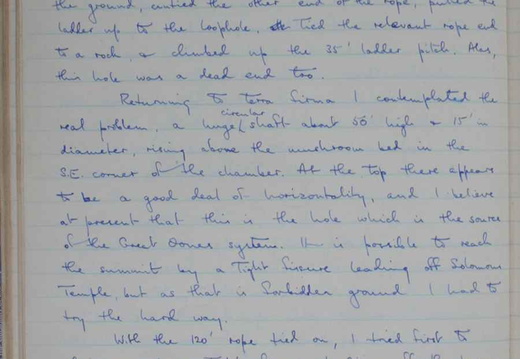 the ground, carried the other end of the rope, pulled the
ladder up to the loophole, tied the relevant rope end
to a rock, & climbed up the 35' ladder pitch. Alas,
this hole was a dead end too.
Returning to terra firma I contemplated the
circular
real problem, a huge shaft about 50' high & 15' in
diameter, rising above the mushroom bed in the
S.E. corner of the chamber. At the top there appears
to be a good deal of horizontality, and I believe
at present that this is the hole which is the source
of the Great Oones system. It is possible to reach
the summit by a tight fissure leading off Solomons
Temple, but as that is forbidden ground I had to
try the hard way.
With the 120' rope tied on, I tried first to